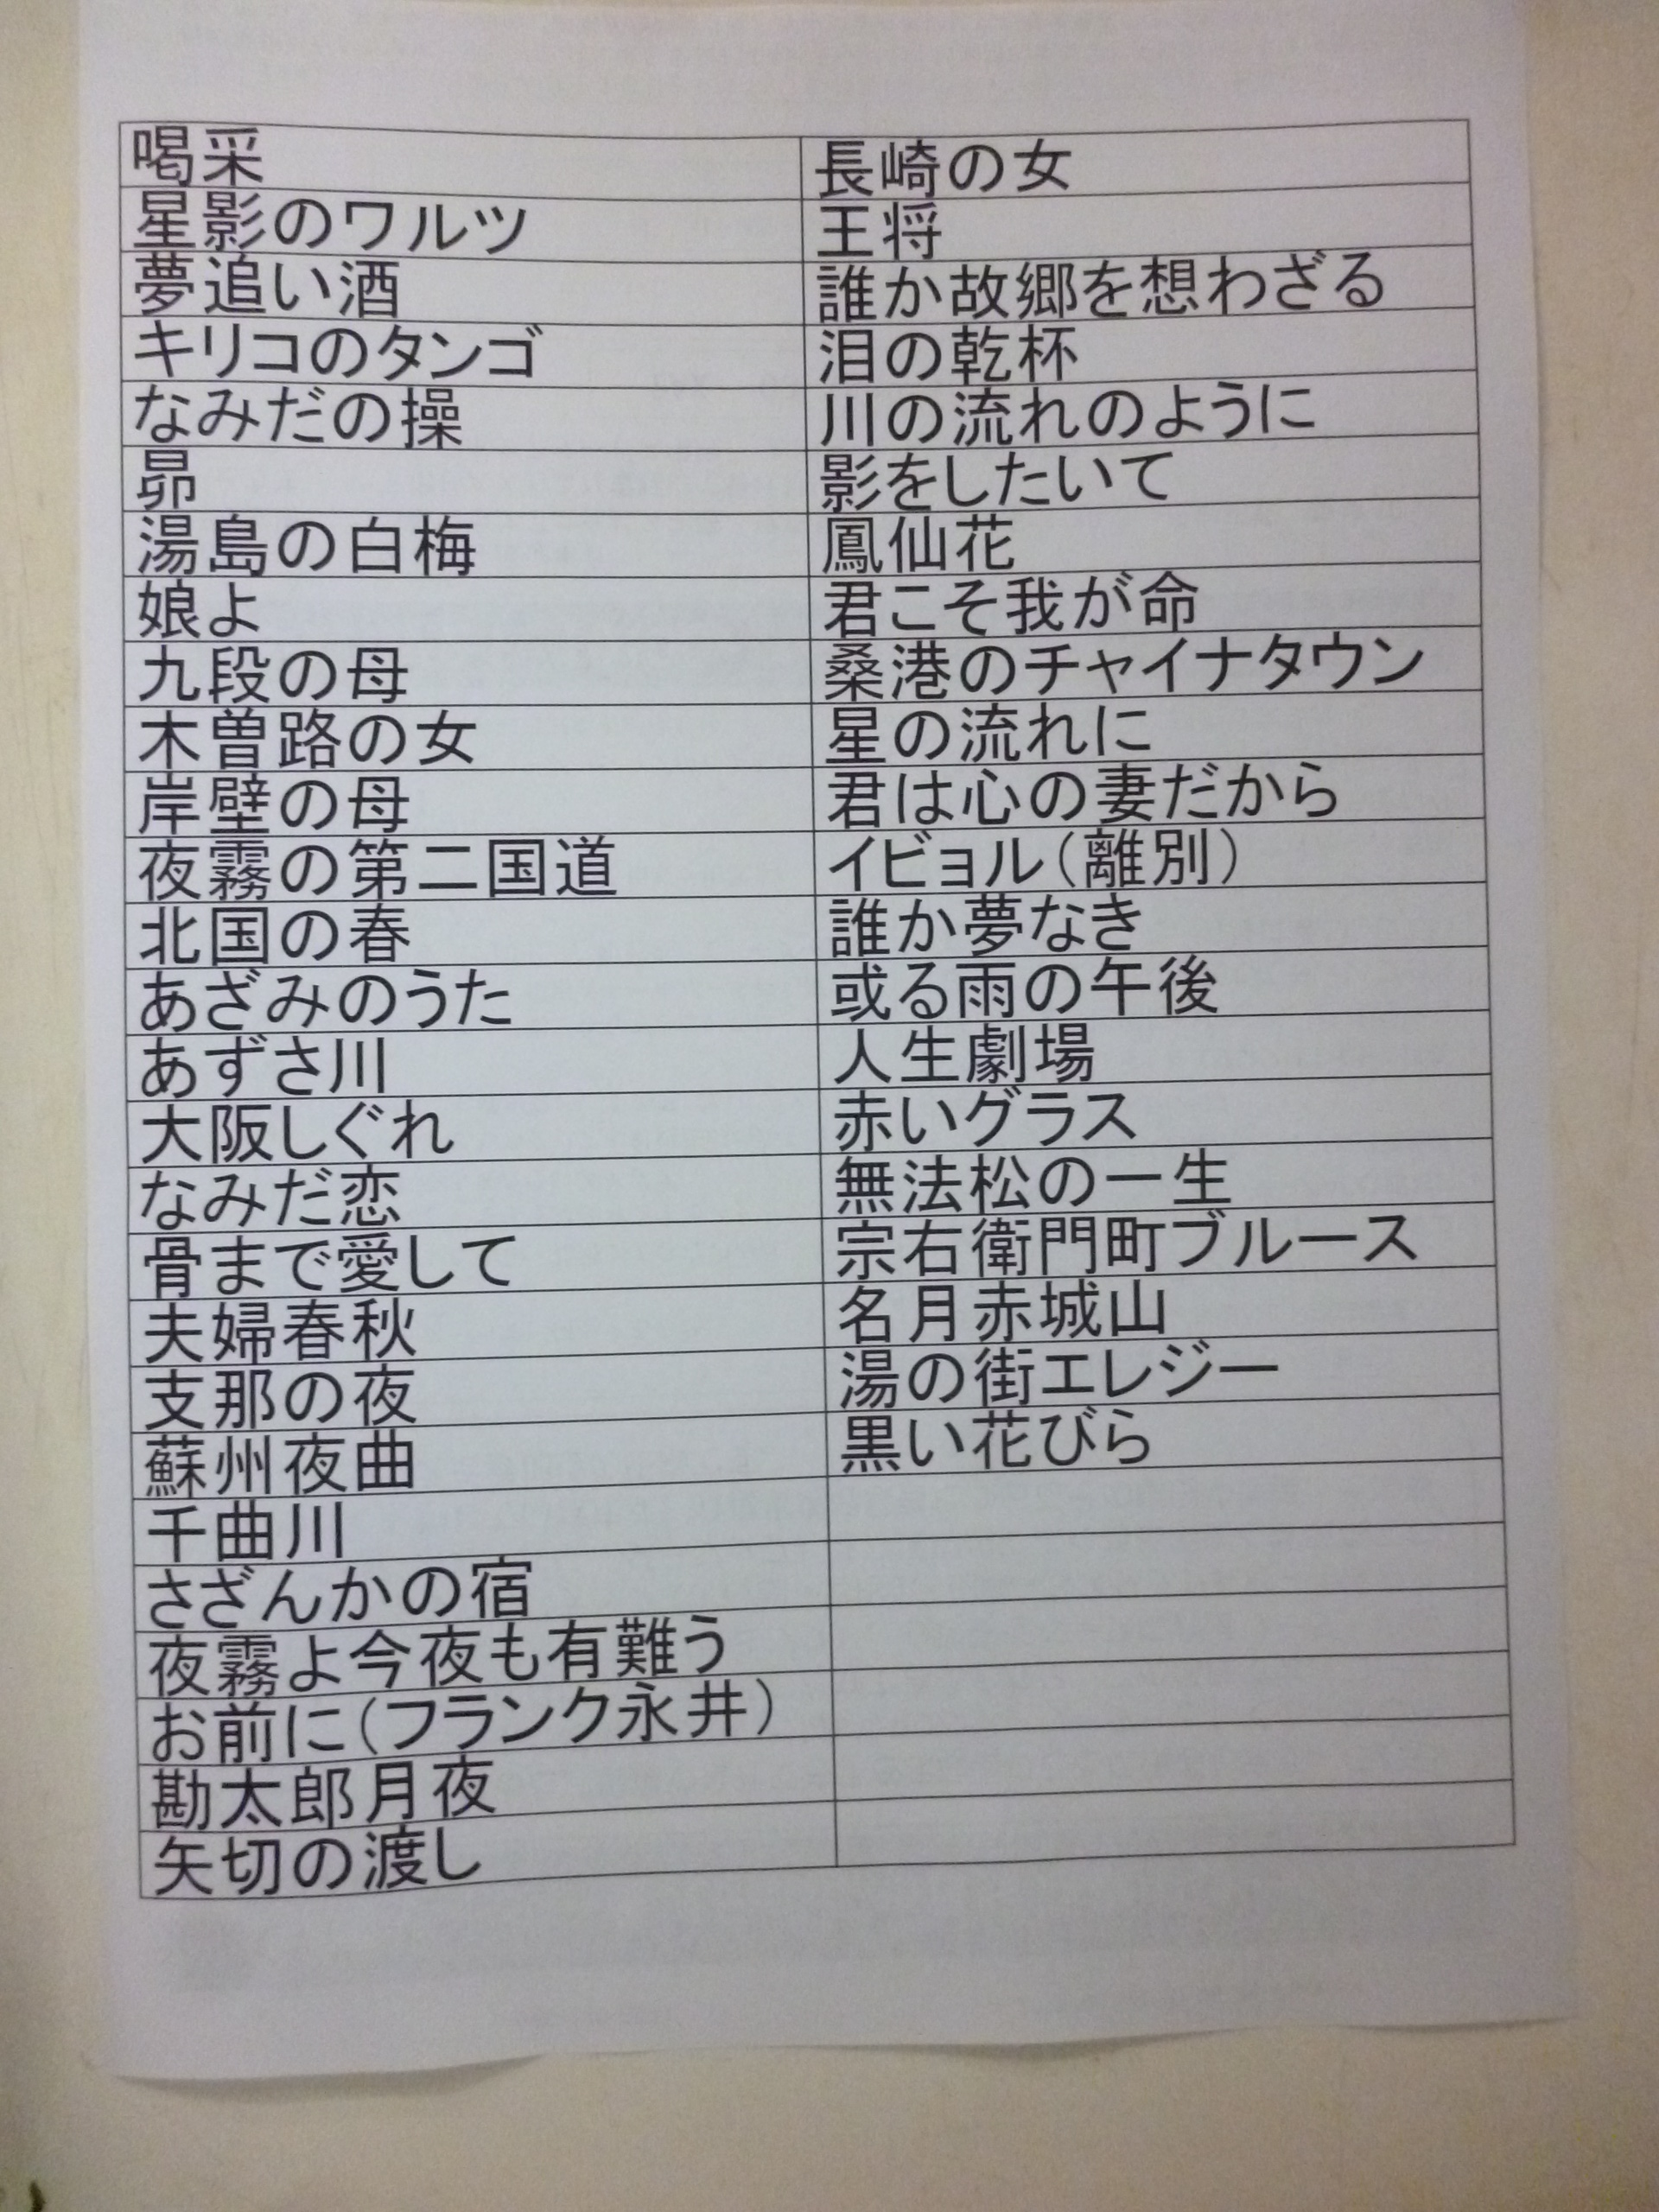 喝采
星影のワルツ
夢追い酒
キリコのタンゴ
なみだの操
昴
湯島の白梅
娘よ
九段の母
木曽路の女
岸壁の母
夜霧の第二国道
北国の春
あざみのうた
あずさ川
大阪しぐれ
なみだ恋
骨まで愛して
夫婦春秋
支那の夜
蘇州夜曲
千曲川
さざんかの宿
夜霧よ今夜も有難う
お前に(フランク永井)
勘太郎月夜
矢切の渡し
長崎の女
王将
誰か故郷を想わざる
泪の乾杯
川の流れのように
影をしたいて
鳳仙花
君こそ我が命
桑港のチャイナタウン
星の流れに
君は心の妻だから
イビョル(離別)
誰か夢なき
或る雨の午後
人生劇場
赤いグラス
無法松の一生
宗右衛門町ブルース
名月赤城山
湯の街エレジー
黒い花びら